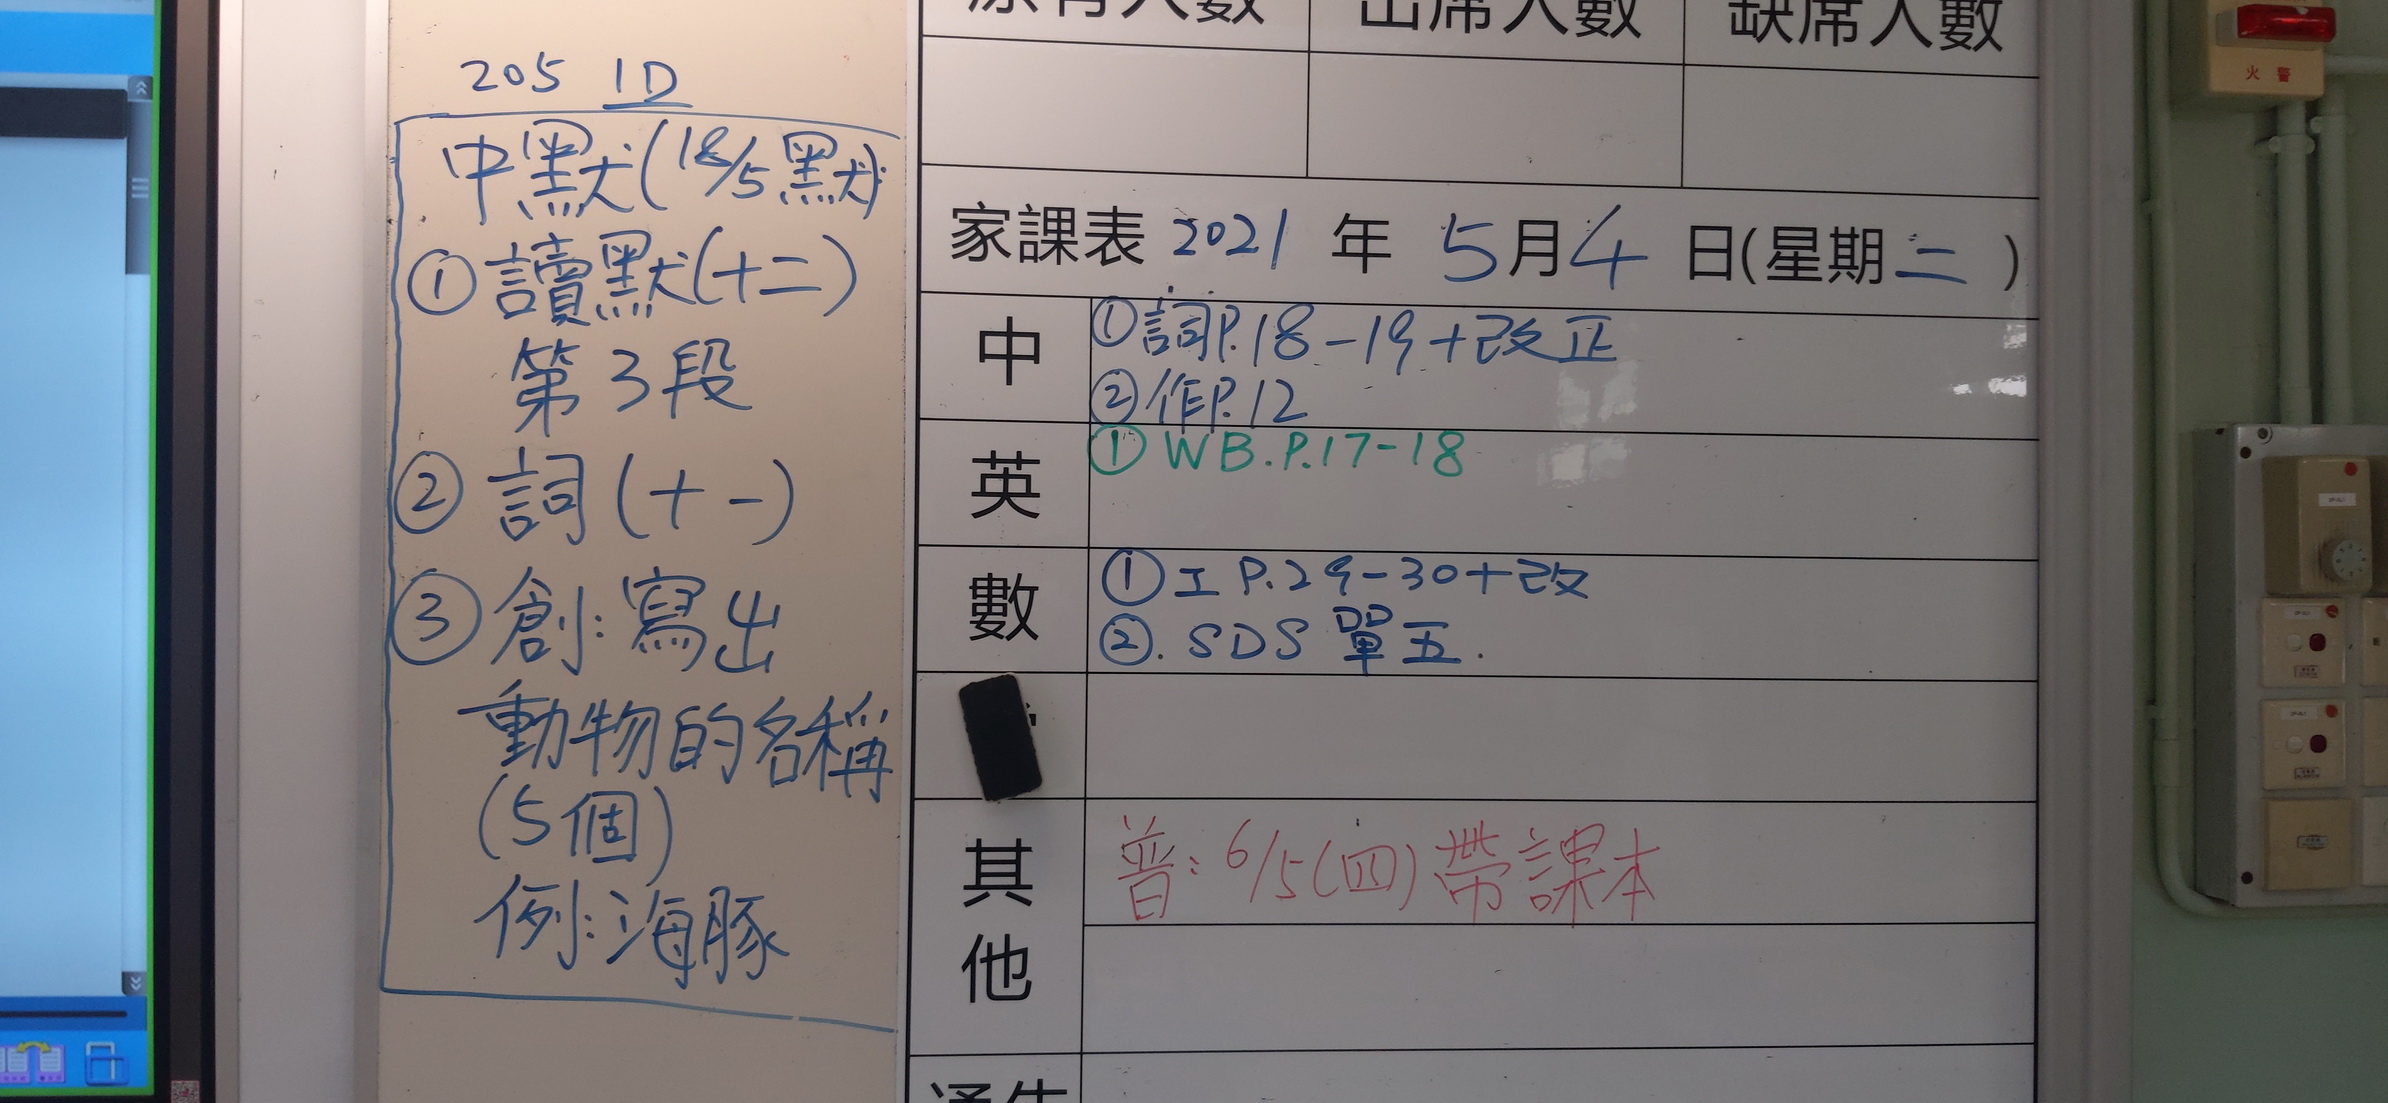 205 1D
中默(18/5默)
①讀默(十二)
第3段
②詞(十一)
③創:寫出
動物的名稱
(5個)
例:海豚
原有人數 出席人數 缺席人數
家課表 2021 年 5月4 日(星期二)
中
①詞P.18-19+改正
②作P.12
英
①WB.P.17-18
數
①工P.29-30+改
②.SDS單五.
其他
普:6/5(四)帶課本
通告
火警